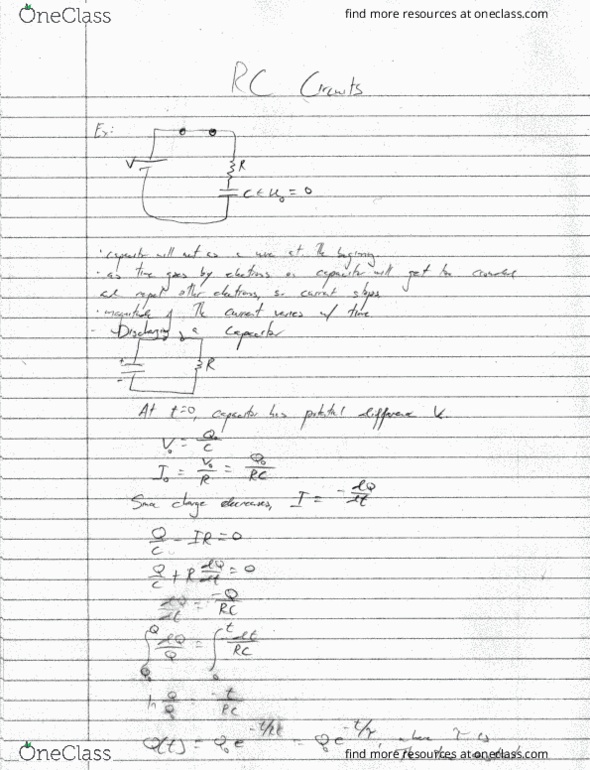 OneClass
find more resources at oneclass.com
RC Circuits
Ex:
V
R
C
= 0
· capacitor will act as a wire at the beginning
· as time goes by electrons on capacitor will get too crowded
and repel other electrons, so current stops
· magnitude of the current varies w/ time
- Discharging a Capacitor
+
R
-
At t=0, capacitor has potential difference V₀
V₀ = Q₀/C
I₀ = V₀/R = Q₀/RC
Since charge decreases, I = -dQ/dt
Q/C - IR = 0
Q/C + R dQ/dt = 0
dQ/dt = -Q/RC
∫ dQ/Q = ∫ -dt/RC
ln Q/Q₀ = -t/RC
Q(t) = Q₀e^-t/RC = Q₀e^-t/τ, where τ is
OneClass
find more resources at oneclass.com